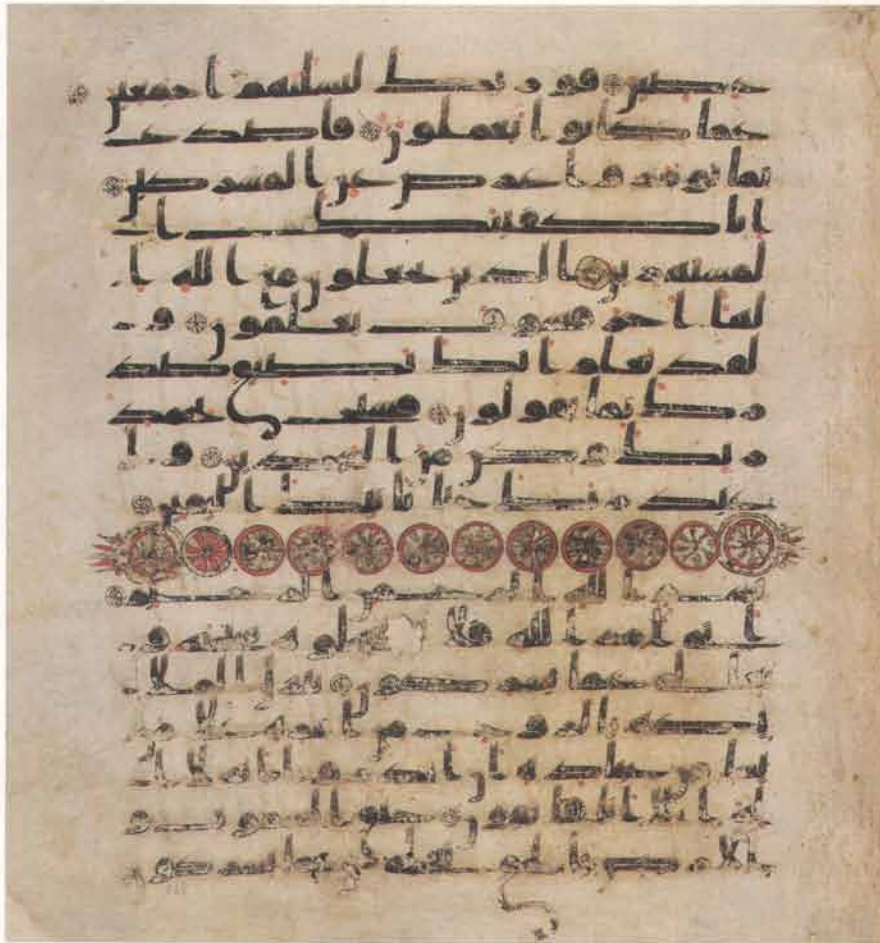 عضين فوربك لنسلنهم اجمعين
عما كانوا يعملون فاصدع
بما تومر واعرض عن المشركين
انا كفينك ا
لمستهزين الذين يجعلون مع الله ا
لها اخر فسوف يعلمون و
لقد نعلم انك يضيق صد
رك بما يقولون فسبح بحمد
ربك وكن من السجدين وا
عبد ربك حتى ياتيك اليقين
بسم الله الرحمن الرحيم
اتى امر الله فلا تستعجلوه سبحنه و
تعلى عما يشركون ينزل الملا
يكة بالروح من امره على من
يشا من عباده ان انذروا انه لا ا
له الا انا فاتقون خلق السموت و
الارض بالحق تعلى عما يشركون